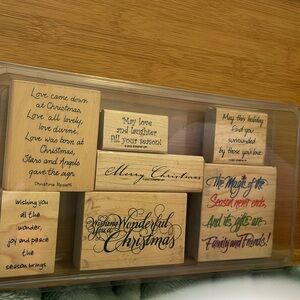 Love came down
at Christmas,
Love all lovely,
love divine;
Love was born at
Christmas,
Stars and Angels
gave the sign
Christina Rossetti
May love
and laughter
fill your season!
May this holiday
find you
surrounded
by those you love.
Merry Christmas
The Magic of the
Season never ends,
And its gifts are
Family and Friends!
Wishing you
all the
wonder,
joy and peace
the
season brings
Wishing
You a Wonderful
Christmas